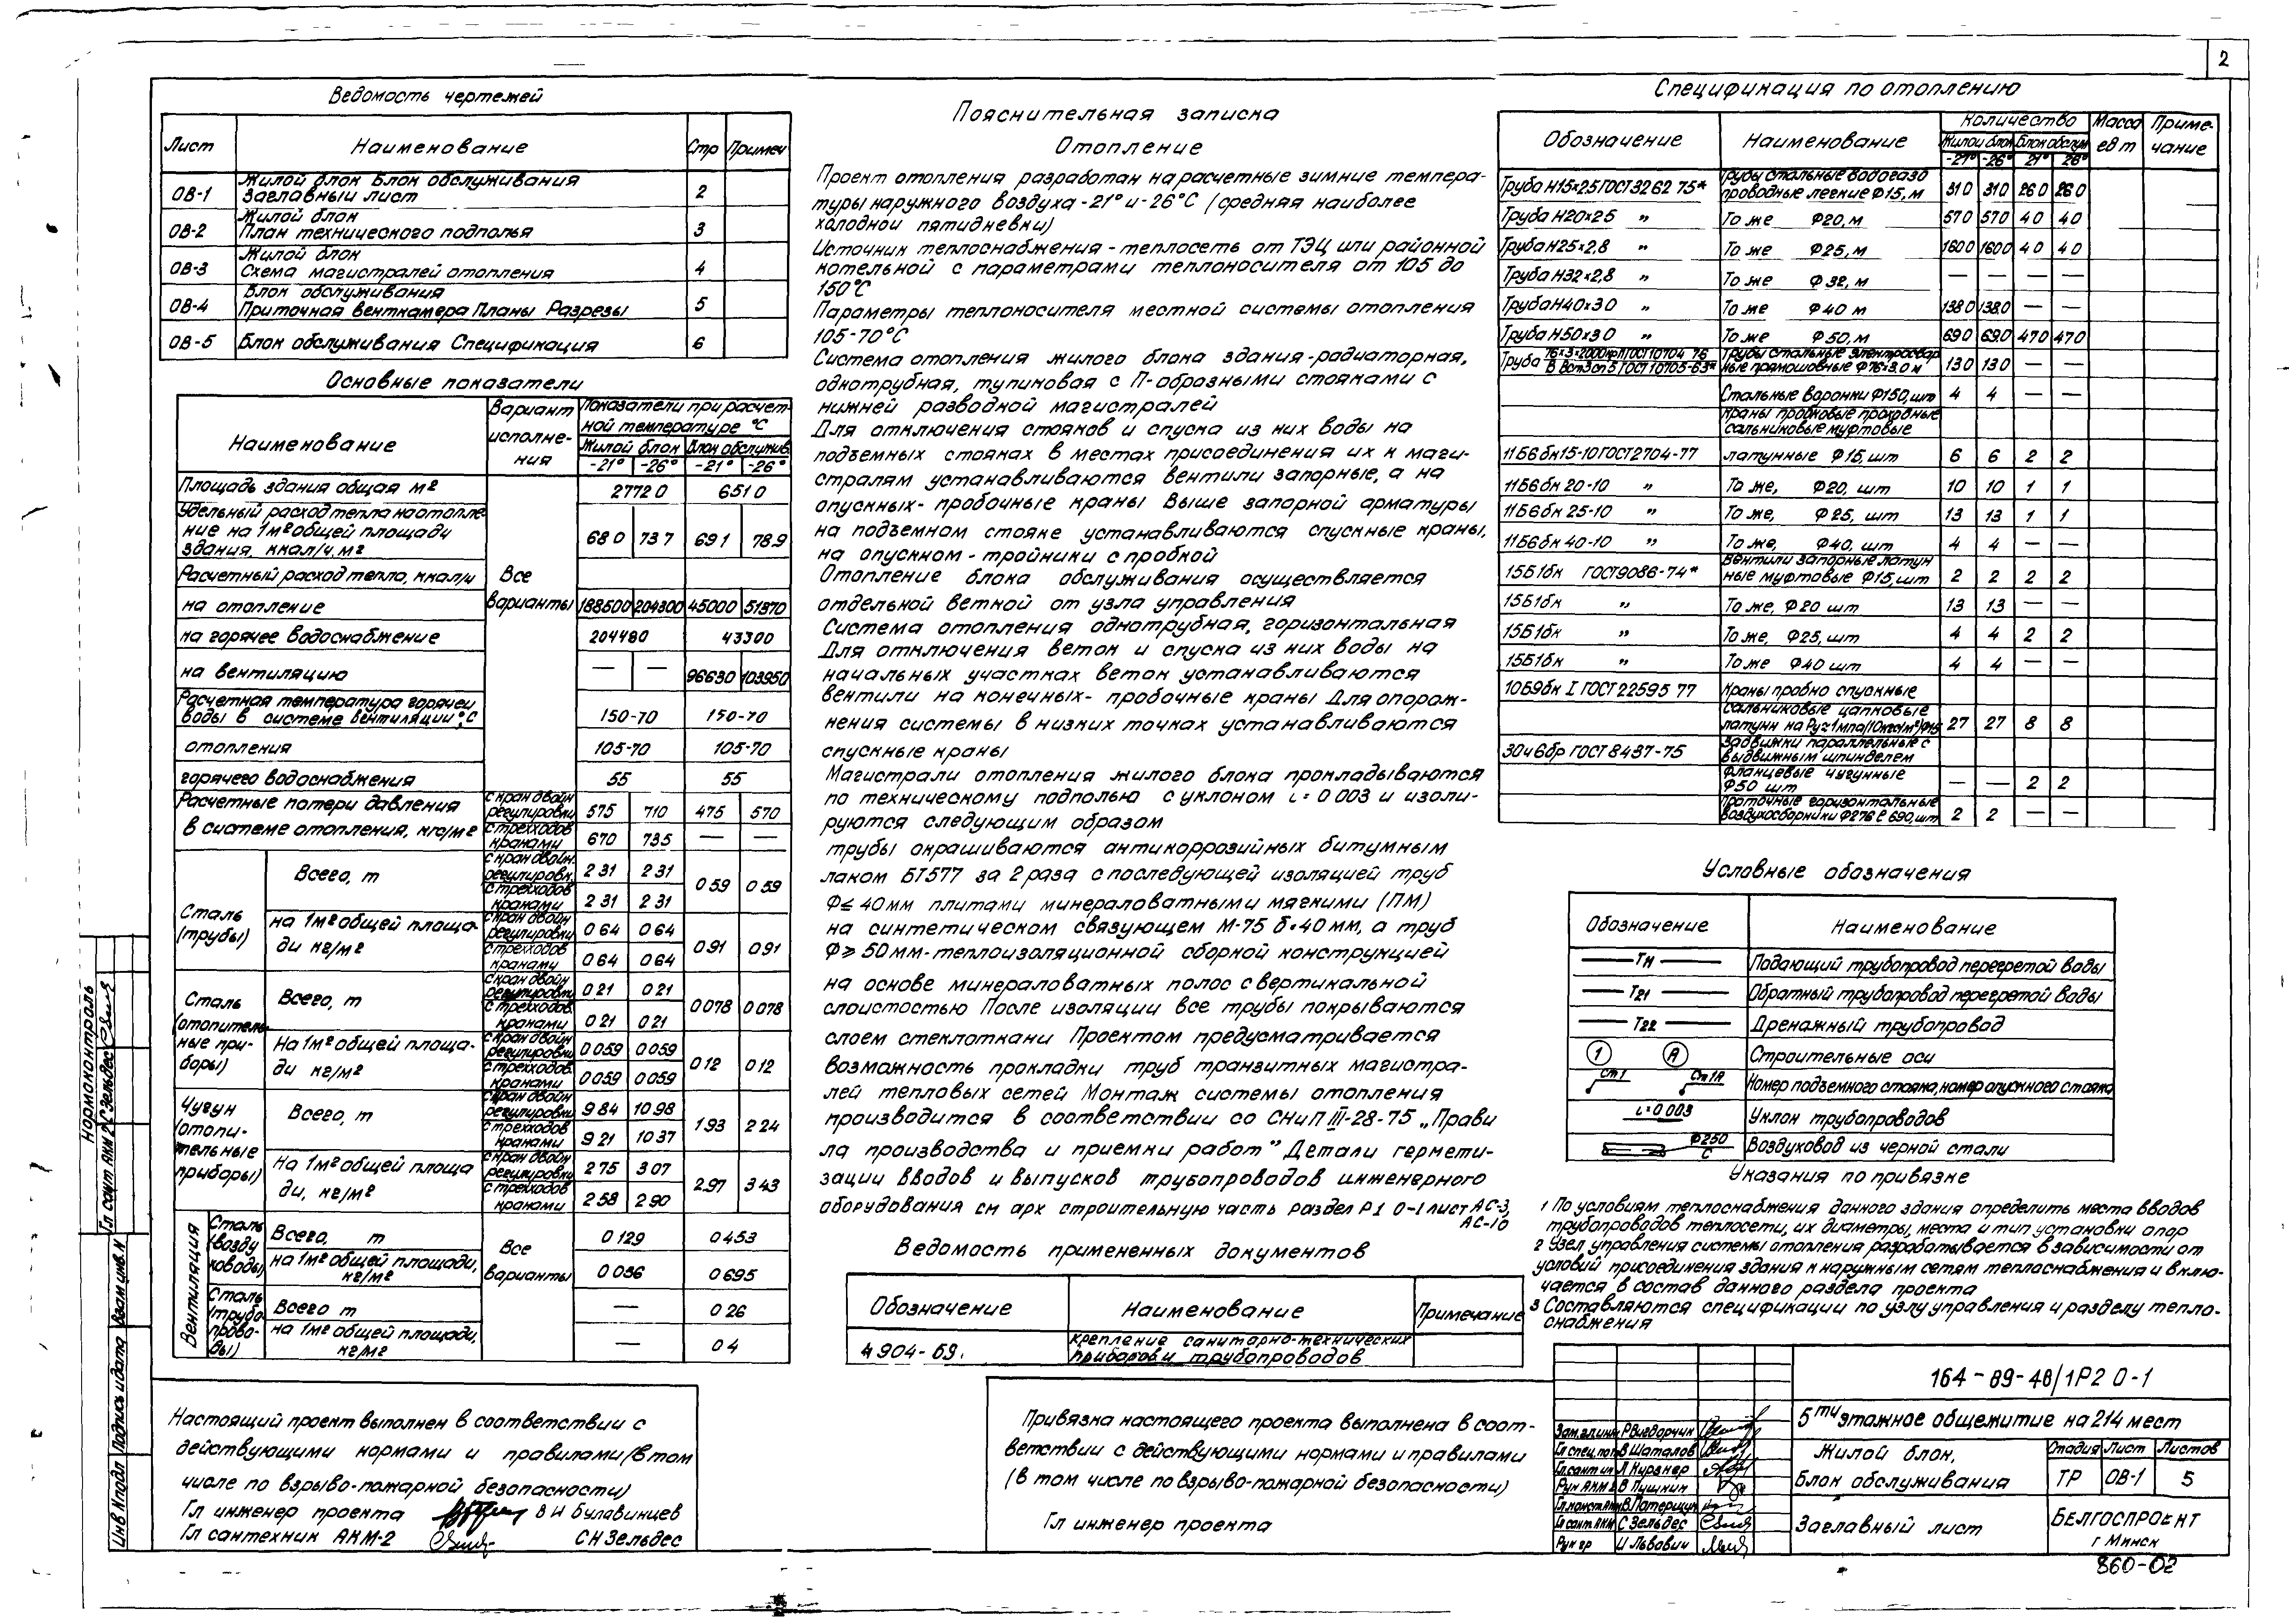 2
Ведомость чертежей
Лист Наименование Стр Примеч
ОВ-1 Жилой блок Блок обслуживания
Заглавный лист 2
ОВ-2 Жилой блок
План технического подполья 3
ОВ-3 Жилой блок
Схема магистралей отопления 4
ОВ-4 Блок обслуживания
Приточная венткамера Планы Разрезы 5
ОВ-5 Блок обслуживания Спецификация 6
Основные показатели
Наименование Вариант исполне-ния Показатели при расчет-
ной температуре °С
Жилой блок Блок обслужив.
-21° -26° -21° -26°
Площадь здания общая м² 2772 0 651 0
Удельный расход тепла на отопле-
ние на 1м² общей площади
здания, ккал/ч.м² 68 0 73 7 69 1 78.9
Расчетный расход тепла, ккал/ч Все
на отопление варианты 188500 204300 45000 51370
на горячее водоснабжение 204480 43300
на вентиляцию — — 96630 103950
Расчетная температура горячей
воды в системе вентиляции °С 150-70 150-70
отопления 105-70 105-70
горячего водоснабжения 55 55
Расчетные потери давления с кран двойн
регулировки 575 710 475 570
в системе отопления, кгс/м² с трехходов
кранами 670 735 — —
Сталь
(трубы)
Всего, т с кран двойн.
регулировк. 2 31 2 31 0 59 0 59
с трехходов
кранами 2 31 2 31
на 1м² общей площа-
ди кг/м² с кран двойн
регулировки 0 64 0 64 0 91 0 91
с трехходов
кранами 0 64 0 64
Сталь
(отопитель-
ные при-
боры)
Всего, т с кран двойн
регулировки 0 21 0 21 0 078 0 078
с трехходов
кранами 0 21 0 21
На 1м² общей площа-
ди кг/м² с кран двойн
регулировки 0 059 0 059 0 12 0 12
с трехходов
кранами 0 059 0 059
Чугун
(отопи-
тельные
приборы)
Всего, т с кран двойн
регулировки 9 84 10.98 1.93 2 24
с трехходов
кранами 9 21 10 37
На 1м² общей площа
ди, кг/м² с кран двойн
регулировки 2 75 3 07 2.97 3 43
с трехходов
кранами 2 58 2 90
Вентиляция
Сталь
(возду
ховоды)
Всего, т Все 0 129 0 453
на 1м² общей площади,
кг/м² варианты 0 036 0 695
Сталь
(трубо
прово-
ды)
Всего т — 0 26
на 1м² общей площади,
кг/м² — 0 4
Настоящий проект выполнен в соответствии с
действующими нормами и правилами (в том
числе по взрыво-пожарной безопасности)
Гл инженер проекта В И Булавинцев
Гл сантехник АКМ-2 С Н Зельдес
Пояснительная записка
Отопление
Проект отопления разработан на расчетные зимние темпера-
туры наружного воздуха -21° и -26°С (средняя наиболее
холодной пятидневки)
Источник теплоснабжения - теплосеть от ТЭЦ или районной
котельной с параметрами теплоносителя от 105 до
150°С
Параметры теплоносителя местной системы отопления
105-70°С
Система отопления жилого блока здания - радиаторная,
однотрубная, тупиковая с П-образными стояками с
нижней разводкой магистралей
Для отключения стояков и спуска из них воды на
подъемных стояках в местах присоединения их к маги-
стралям устанавливаются вентили запорные, а на
опускных - пробочные краны Выше запорной арматуры
на подъемном стояке устанавливаются спускные краны,
на опускном - тройники с пробкой
Отопление блока обслуживания осуществляется
отдельной веткой от узла управления
Система отопления однотрубная, горизонтальная
Для отключения веток и спуска из них воды на
начальных участках веток устанавливаются
вентили на конечных - пробочные краны Для опорож-
нения системы в низких точках устанавливаются
спускные краны
Магистрали отопления жилого блока прокладываются
по техническому подполью с уклоном i = 0 003 и изоли-
руются следующим образом
трубы окрашиваются антикоррозийных битумным
лаком БТ577 за 2 раза с последующей изоляцией труб
Ф≤ 40мм плитами минераловатными мягкими (ПМ)
на синтетическом связующем М-75 δ=40 мм, а труб
Ф≥ 50мм - теплоизоляционной сборной конструкцией
на основе минераловатных полос с вертикальной
слоистостью После изоляции все трубы покрываются
слоем стеклоткани Проектом предусматривается
возможность прокладки труб транзитных магистра-
лей тепловых сетей Монтаж системы отопления
производится в соответствии со СНиП III-28-75 „Прави
ла производства и приемки работ” Детали гермети-
зации вводов и выпусков трубопроводов инженерного
оборудования см арх строительную часть раздел Р1 0-1 лист АС-3,
АС-10
Ведомость примененных документов
Обозначение Наименование Примечание
4 904-69. Крепление санитарно-технических
приборов и трубопроводов
Привязка настоящего проекта выполнена в соот-
ветствии с действующими нормами и правилами
(в том числе по взрыво-пожарной безопасности)
Гл инженер проекта
Спецификация по отоплению
Обозначение Наименование Количество Масса ед т Приме-чание
Жилой блок Блок обслуж
-21° -26° 21° 26°
Труба Н15×2.5 ГОСТ 3262 75* Трубы стальные водогазо
проводные легкие Ф15, м 31 0 31 0 26 0 26 0
Труба Н20×2 5 „ То же Ф20, м 57 0 57 0 4 0 4 0
Труба Н25×2,8 „ То же Ф25, м 160 0 160 0 4 0 4 0
Труба Н32×2,8 „ То же Ф 32, м — — — —
Труба Н40×3 0 „ То же Ф 40 м 138 0 138.0 — —
Труба Н50×3 0 „ То же Ф 50, м 69 0 69.0 47 0 47 0
Труба 76×3×2000кр П ГОСТ 10704 76
В Вст3сп5 ГОСТ 10705-63* Трубы стальные электросвар
ные прямошовные Ф76×3.0 м 13 0 13 0 — —
Стальные воронки Ф150, шт 4 4 — —
Краны пробковые проходные
сальниковые муфтовые
11Б6бк15-10 ГОСТ 2704-77 латунные Ф 15, шт 6 6 2 2
11Б6бк 20-10 „ То же, Ф20, шт 10 10 1 1
11Б6бк 25-10 „ То же, Ф 25, шт 13 13 1 1
11Б6бк 40-10 „ То же, Ф40, шт 4 4 — —
15Б1бк ГОСТ 9086-74* Вентили запорные латун
ные муфтовые Ф15, шт 2 2 2 2
15Б1бк „ То же, Ф 20 шт 13 13 — —
15Б1бк „ То же, Ф25, шт 4 4 2 2
15Б1бк „ То же Ф40 шт 4 4 — —
10Б9бк I ГОСТ 22595 77 Краны пробно спускные
сальниковые цапковые
латунн на Ру=1мпа(10кгс/м²) 27 27 8 8
30ч6бр ГОСТ 8437-75 Задвижки параллельные с
выдвижным шпинделем
фланцевые чугунные
Ф50 шт — — 2 2
Проточные горизонтальные
воздухосборники Ф276 ℓ 690, шт 2 2 — —
Условные обозначения
Обозначение Наименование
Т11 Подающий трубопровод перегретой воды
Т21 Обратный трубопровод перегретой воды
Т22 Дренажный трубопровод
1 А Строительные оси
Ст1 Ст1А Номер подъемного стояка, номер опускного стояка
i=0 003 Уклон трубопроводов
Ф250
С Воздуховод из черной стали
Указания по привязке
1 По условиям теплоснабжения данного здания определить места вводов
трубопроводов теплосети, их диаметры, места и тип установки опор
2 Узел управления системы отопления разрабатывается в зависимости от
условий присоединения здания к наружным сетям теплоснабжения и вклю-
чается в состав данного раздела проекта
3 Составляются спецификации по узлу управления и разделу тепло-
снабжения
164-89-48/1Р2 0-1
5ти этажное общежитие на 214 мест
Жилой блок,
Блок обслуживания
Стадия Лист Листов
ТР ОВ-1 5
Заглавный лист
БЕЛГОСПРОЕКТ
г Минск
Зам.гл.инж Р Вигдорчик
Гл спец.пот В Шаталов
Гл.сант ин Л Кирзнер
Рук АКМ 2 В Пушкин
Гл констАкм В.Патерцук
Гл сант АКМ С Зельдес
Рук гр И Львович
860-02
Нормоконтроль
Гл сант АКМ 2 С Зельдес
Взам инв. N
Подпись и дата
Инв Nподл